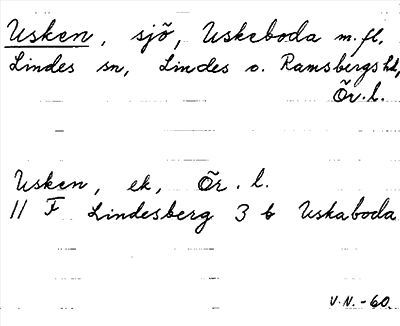 Usken, sjö, Uskeboda m.fl.
Lindes sn, Lindes o. Ramsbergs hd,
Ör. l.
Usken, ek, Ör. l.
11 F Lindesberg 3 b Uskaboda
V.N. -60.